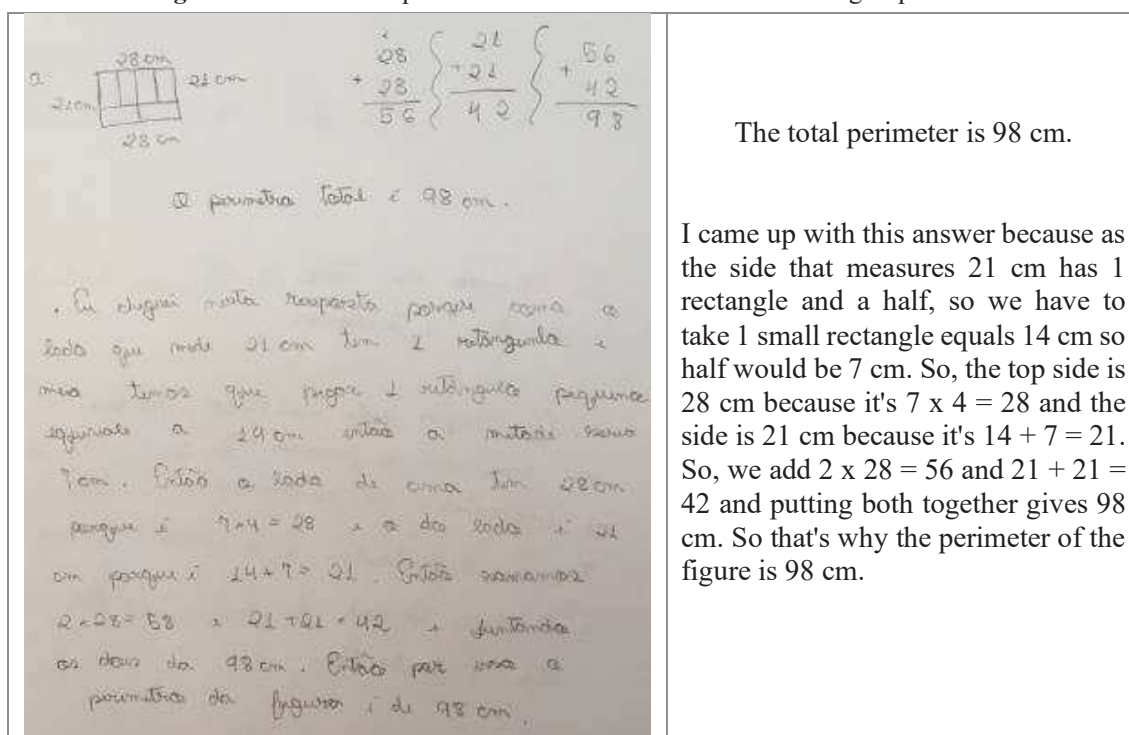 28 cm
21 cm
21 cm
28 cm
28
+ 28
56
21
+ 21
42
56
+ 42
98
O perimetro total é 98 cm.
. Eu cheguei nesta resposta porque como o
lado que mede 21 cm tem 1 retângunlo e
meio temos que pegar 1 retângulo pequeno
equivale a 14 cm então a metade seria
7 cm. Então o lado de cima tem 28 cm
porque é 7×4 = 28 e o dos lados é 21
cm porque é 14+7= 21. Então somamos
2×28= 58 e 21+21=42 e juntando
os dois da 98 cm. Então por isso o
perimetro da figura é de 98 cm.
The total perimeter is 98 cm.
I came up with this answer because as
the side that measures 21 cm has 1
rectangle and a half, so we have to
take 1 small rectangle equals 14 cm so
half would be 7 cm. So, the top side is
28 cm because it's 7 x 4 = 28 and the
side is 21 cm because it's 14 + 7 = 21.
So, we add 2 x 28 = 56 and 21 + 21 =
42 and putting both together gives 98
cm. So that's why the perimeter of the
figure is 98 cm.